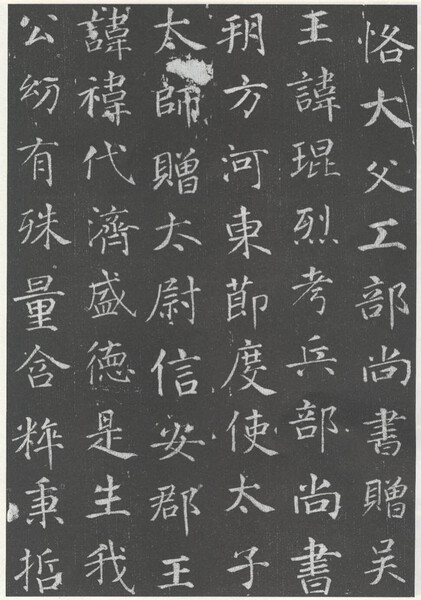 恪大父工部尚書贈吴
王諱琨烈考兵部尚書
朔方河東節度使太子
太師贈太尉信安郡王
諱禕代濟盛德是生我
公幼有殊量含粹秉哲